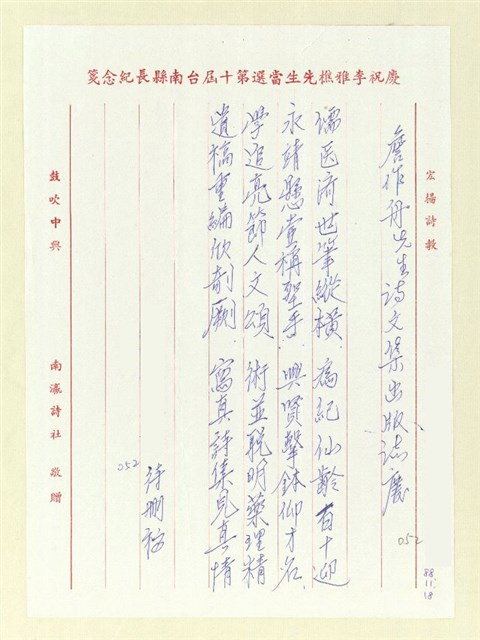 慶祝李雅樵先生當選第十屆台南縣長紀念箋
宏揚詩教
詹作舟先生詩文集出版誌慶
052
88.11.18
儒医濟世筆縱橫 為紀仙齡百十迎
永靖懸壺稱聖手 興賢擊鉢仰才名
學追亮節人文頌 術並脫明藥理精
遺稿重編欣剞劂 寫真詩集見真情
待刪稿
052
鼓吹中興
南瀛詩社 敬贈